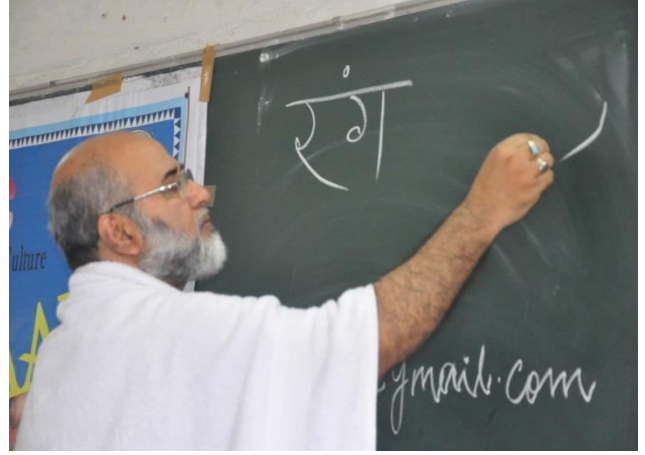 रंग
ulture
gmail.com